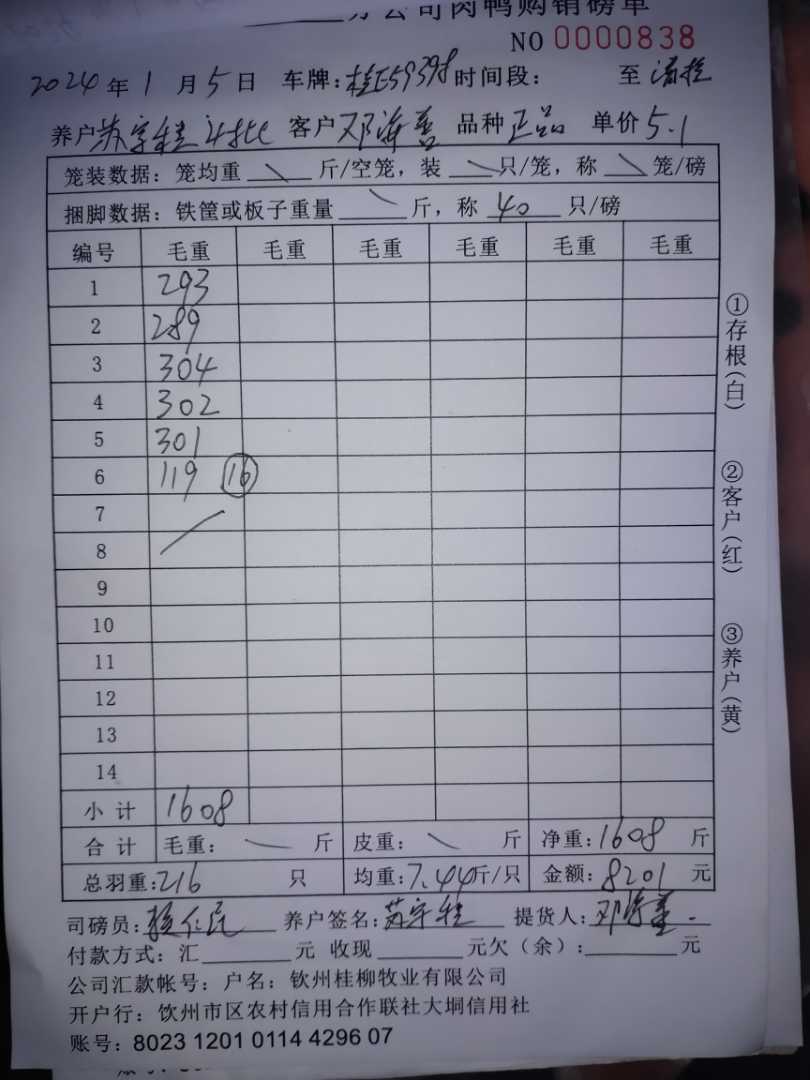 分公司肉鸭购销磅单
NO 0000838
2024年1月5日 车牌:桂E59398 时间段: 至
养户 苏宇桂 客户 邓海善 品种 正品 单价 5.1
笼装数据:笼均重 斤/空笼,装 只/笼,称 笼/磅
捆脚数据:铁筐或板子重量 斤,称 40 只/磅
编号 毛重 毛重 毛重 毛重 毛重 毛重
1 293
2 289
3 304
4 302
5 301
6 119 16
7
8
9
10
11
12
13
14
小计 1608
合计 毛重: 斤 皮重: 斤 净重:1608 斤
总羽重:216 只 均重:7.44斤/只 金额:8201 元
司磅员: 养户签名:苏宇桂 提货人:邓海善
付款方式:汇 元 收现 元欠(余): 元
公司汇款帐号:户名:钦州桂柳牧业有限公司
开户行:饮州市区农村信用合作联社大垌信用社
账号:8023 1201 0114 4296 07
①存根(白)
②客户(红)
③养户(黄)